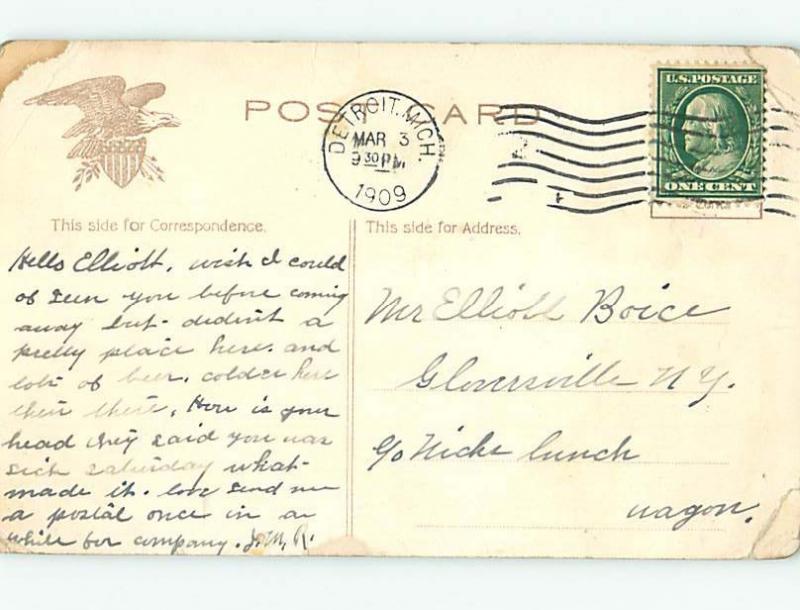 POST CARD
DETROIT, MICH.
MAR 3
9 30 PM
1909
U.S. POSTAGE
ONE CENT
This side for Correspondence.
This side for Address.
Hello Elliott, wish I could
of seen you before coming
away but- dident a
pretty place here. and
lots of beer. colder here
then there, How is your
head they said you was
sick saturday what-
made it. love send me
a postal once in a
while for company. J.M.R.
Mr Elliott Boice
Gloversville N Y.
c/o Niche lunch
wagon.